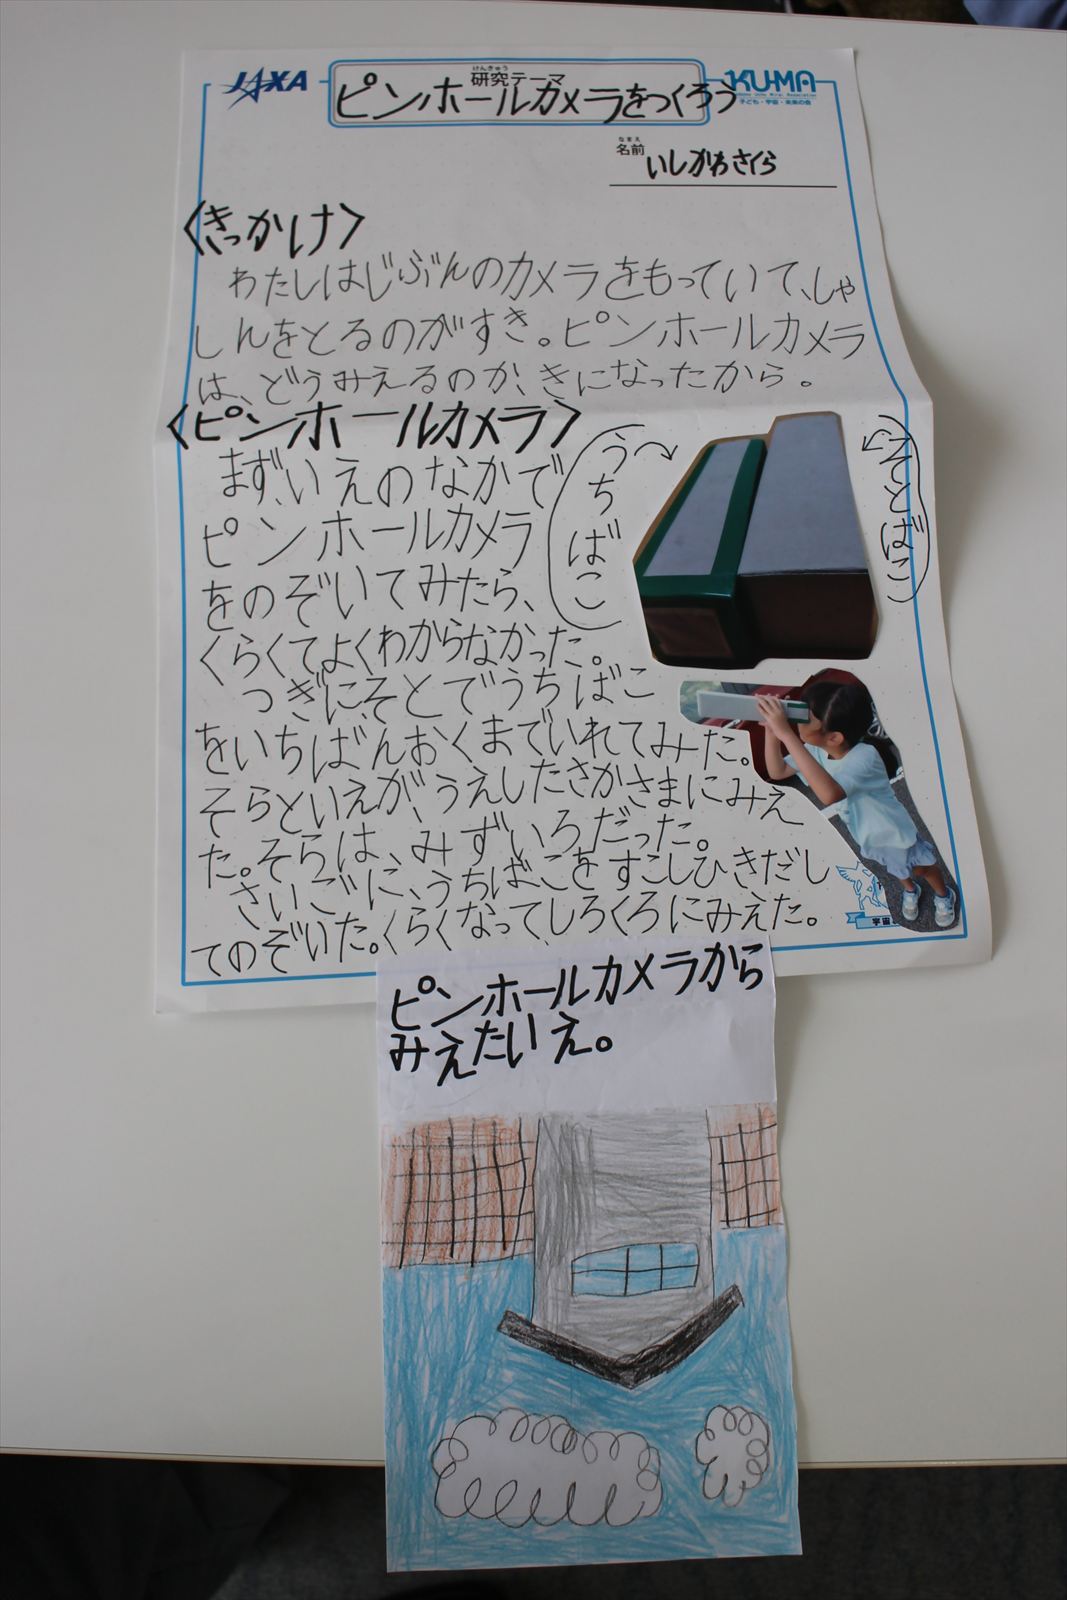 JAXA
けんきゅう
研究テーマ
ピンホールカメラをつくろう
KU-MA
子ども・宇宙・未来の会
なまえ
名前
いしかわさくら
〈きっかけ〉
わたしはじぶんのカメラをもっていて、しゃ
しんをとるのがすき。ピンホールカメラ
は、どうみえるのか、きになったから。
〈ピンホールカメラ〉
うちばこ
そとばこ
まず、いえのなかで
ピンホールカメラ
をのぞいてみたら、
くらくてよくわからなかった。
つぎに、そとでうちばこ
をいちばんおくまでいれてみた。
そらといえが、うえしたさかさまにみえ
た。そらは、みずいろだった。
さいごに、うちばこをすこしひきだし
てのぞいた。くらくなって、しろくろにみえた。
宇宙
ピンホールカメラから
みえたいえ。